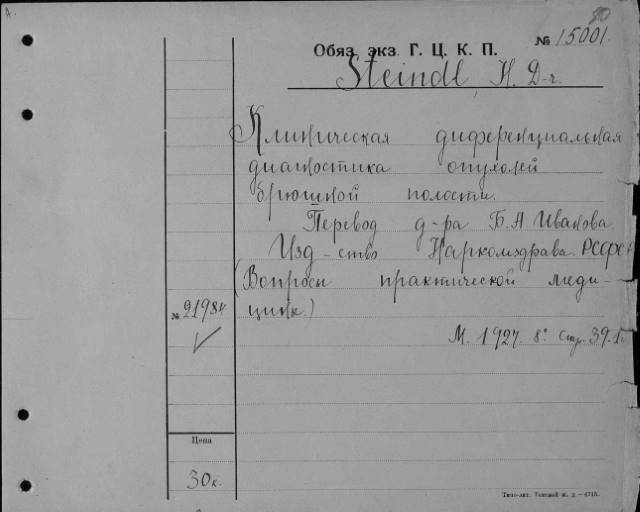 А.
80
Обяз. экз. Г. Ц. К. П. № 15001.
Steindl, H. D-r.
Клиническая диференциальная
диагностика опухолей
брюшной полости.
Перевод д-ра Б. А Иванова.
Изд-ство Наркомздрава РСФСР
(Вопросы практической меди-
цины.)
№ 21984
М. 1927. 8° Стр. 39.
Цена
30 к.
Типо-лит.
ж. д. — 4715.